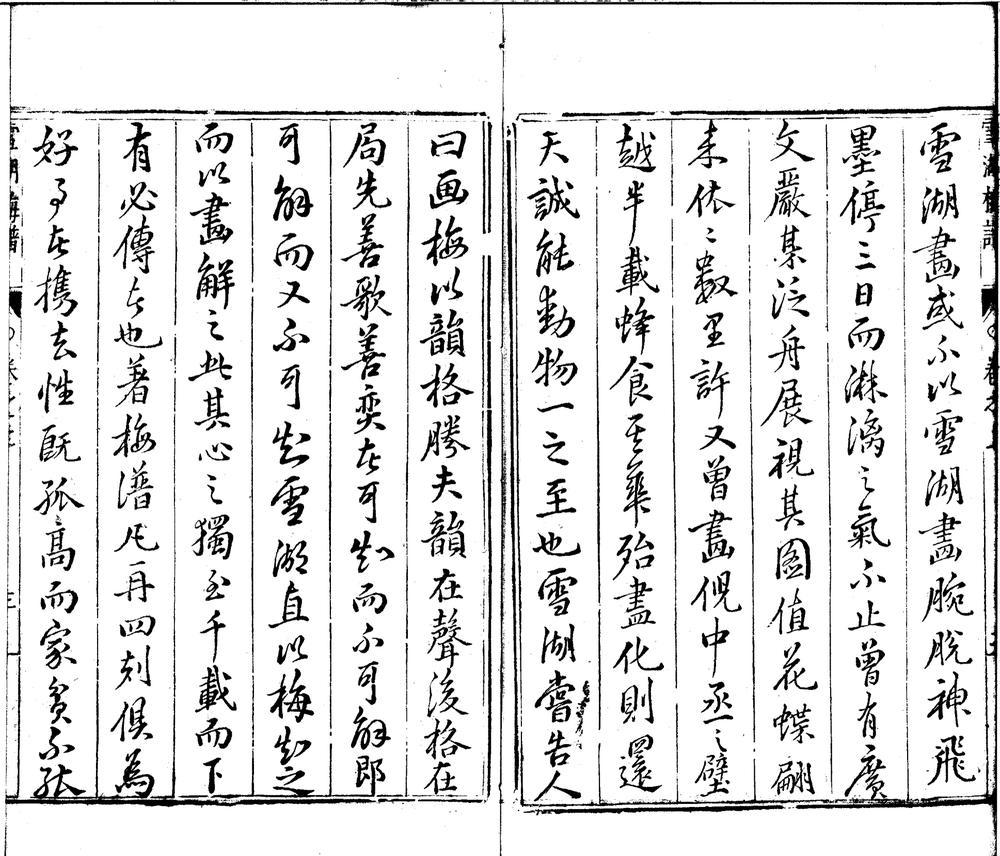 雪湖畫或不以雪湖畫腕脫神飛
墨停三日而淋漓之氣不止曾有廣
文嚴某泛舟展視其圖值花蝶翩
来依〻數里許又曾畫倪中丞之壁
越半載蜂食其華殆盡化則還
天誠能動物一之至也雪湖嘗告人
曰画梅以韻格勝夫韻在聲後格在
局先善歌善奕者可知而不可解即
可解而又不可知雪湖直以梅知之
而以畫解之此其心之獨至千載而下
有必傳者也著梅譜凡再四刻俱為
好事者携去性既孤高而家貧不能
雪湖梅譜